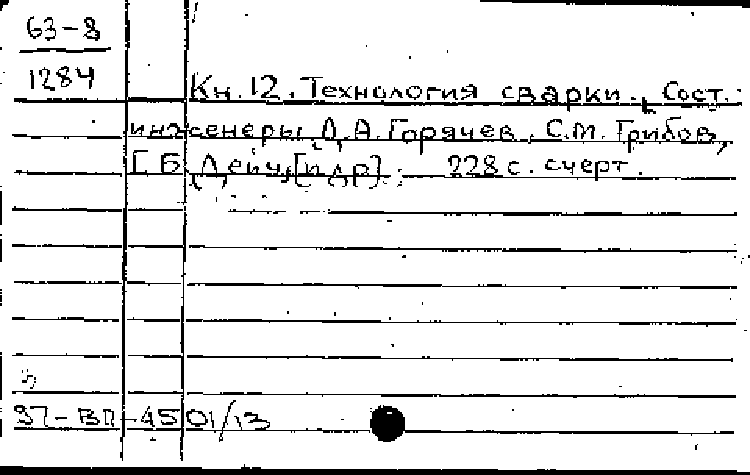 63-8
1284
Кн. 12. Технология сварки. Сост.:
инженеры Д.А. Горячев, С.М. Грибов,
Г.Б. Дейч, [и др]. 228 с. с черт.
37-ВП-4501/13